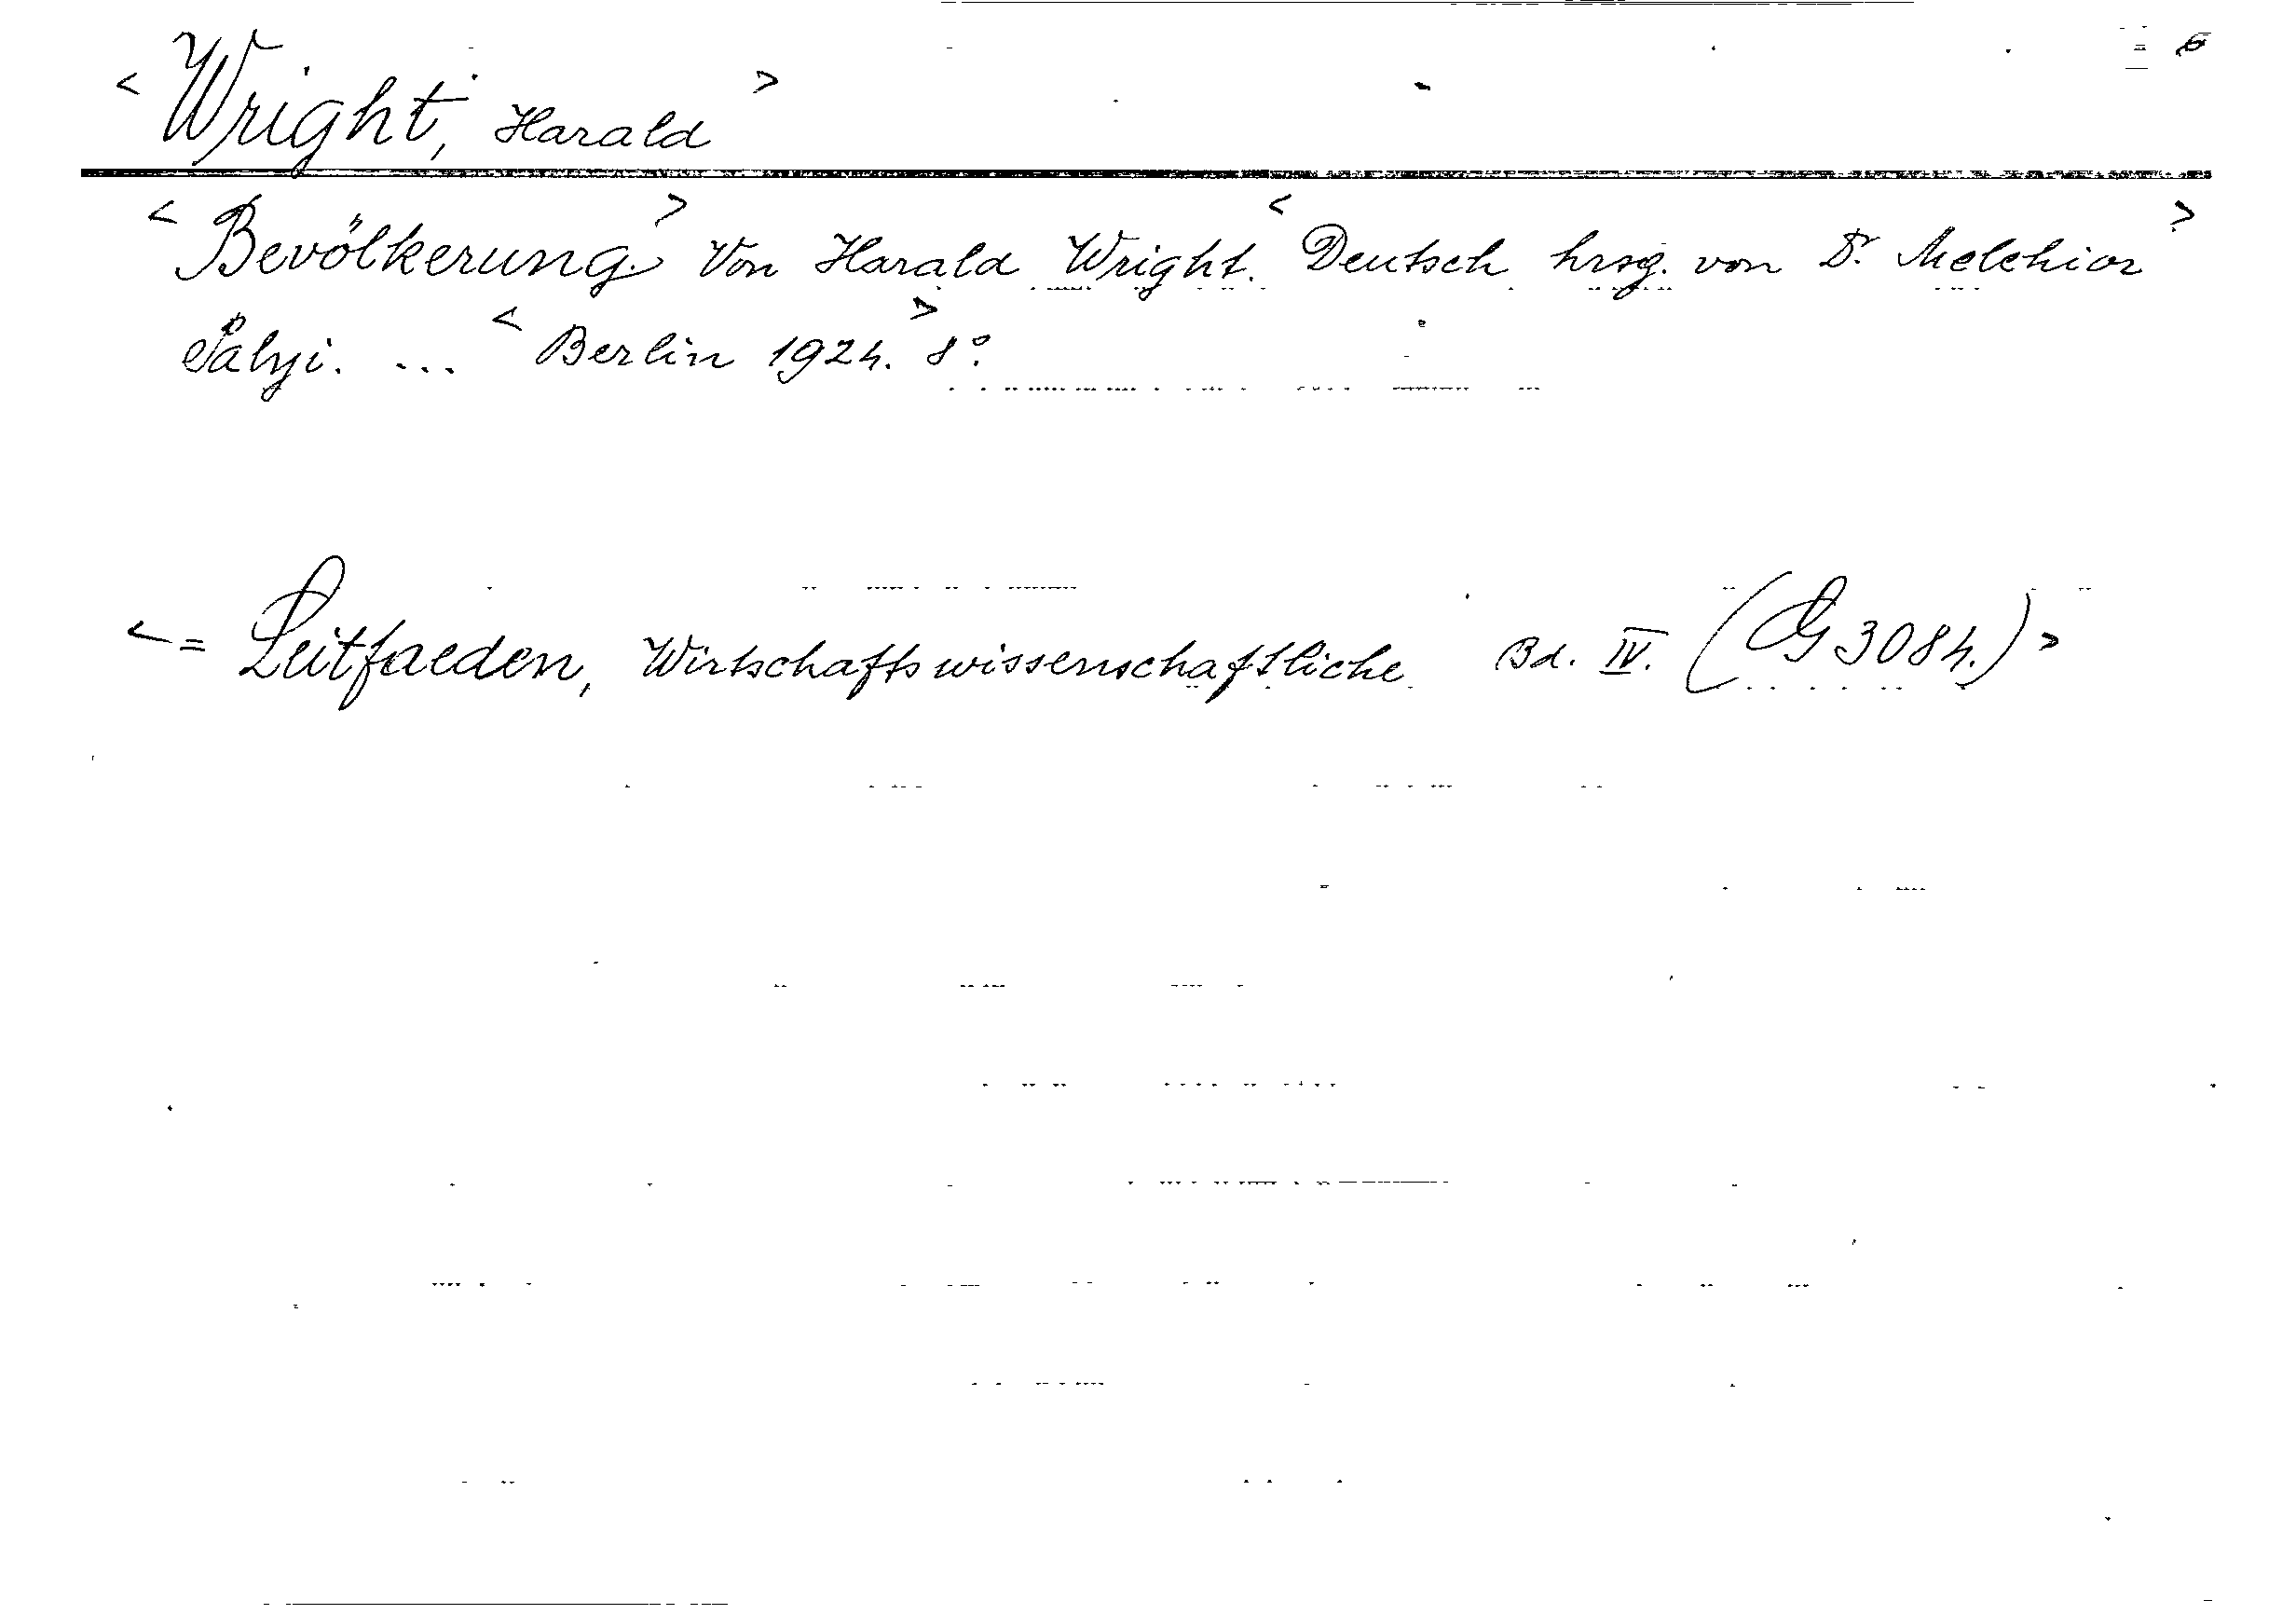 < Wright, Harald >
< Bevölkerung. > Von Harald Wright. < Deutsch hrsg. von Dr. Melchior >
Palyi. ... < Berlin 1924. > 8°.
< = Leitfaeden, Wirtschaftswissenschaftliche. Bd. IV. (G 3084.) >